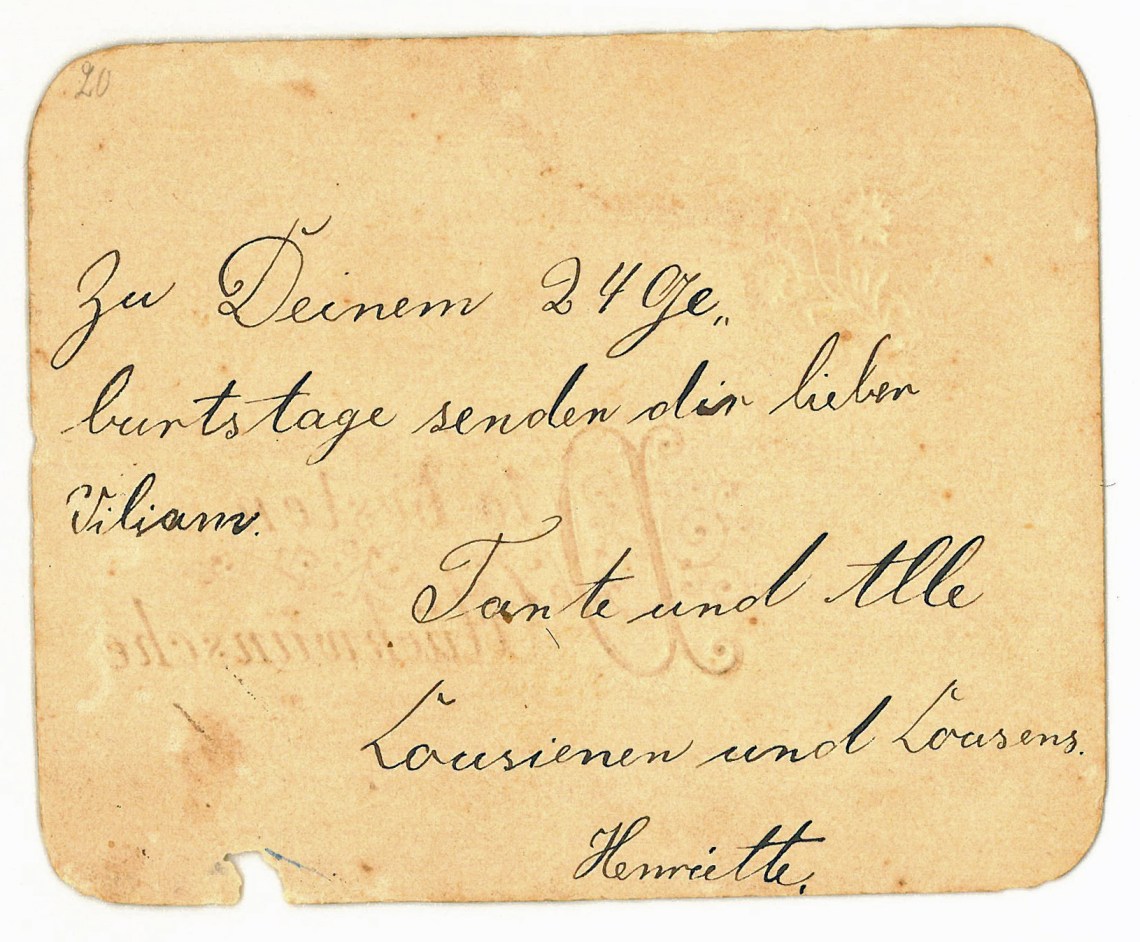 20
Zu Deinem 24 Ge„
burtstage senden dir lieber
Viliam.
Tante und Alle
Cousienen und Cousens.
Henriette.